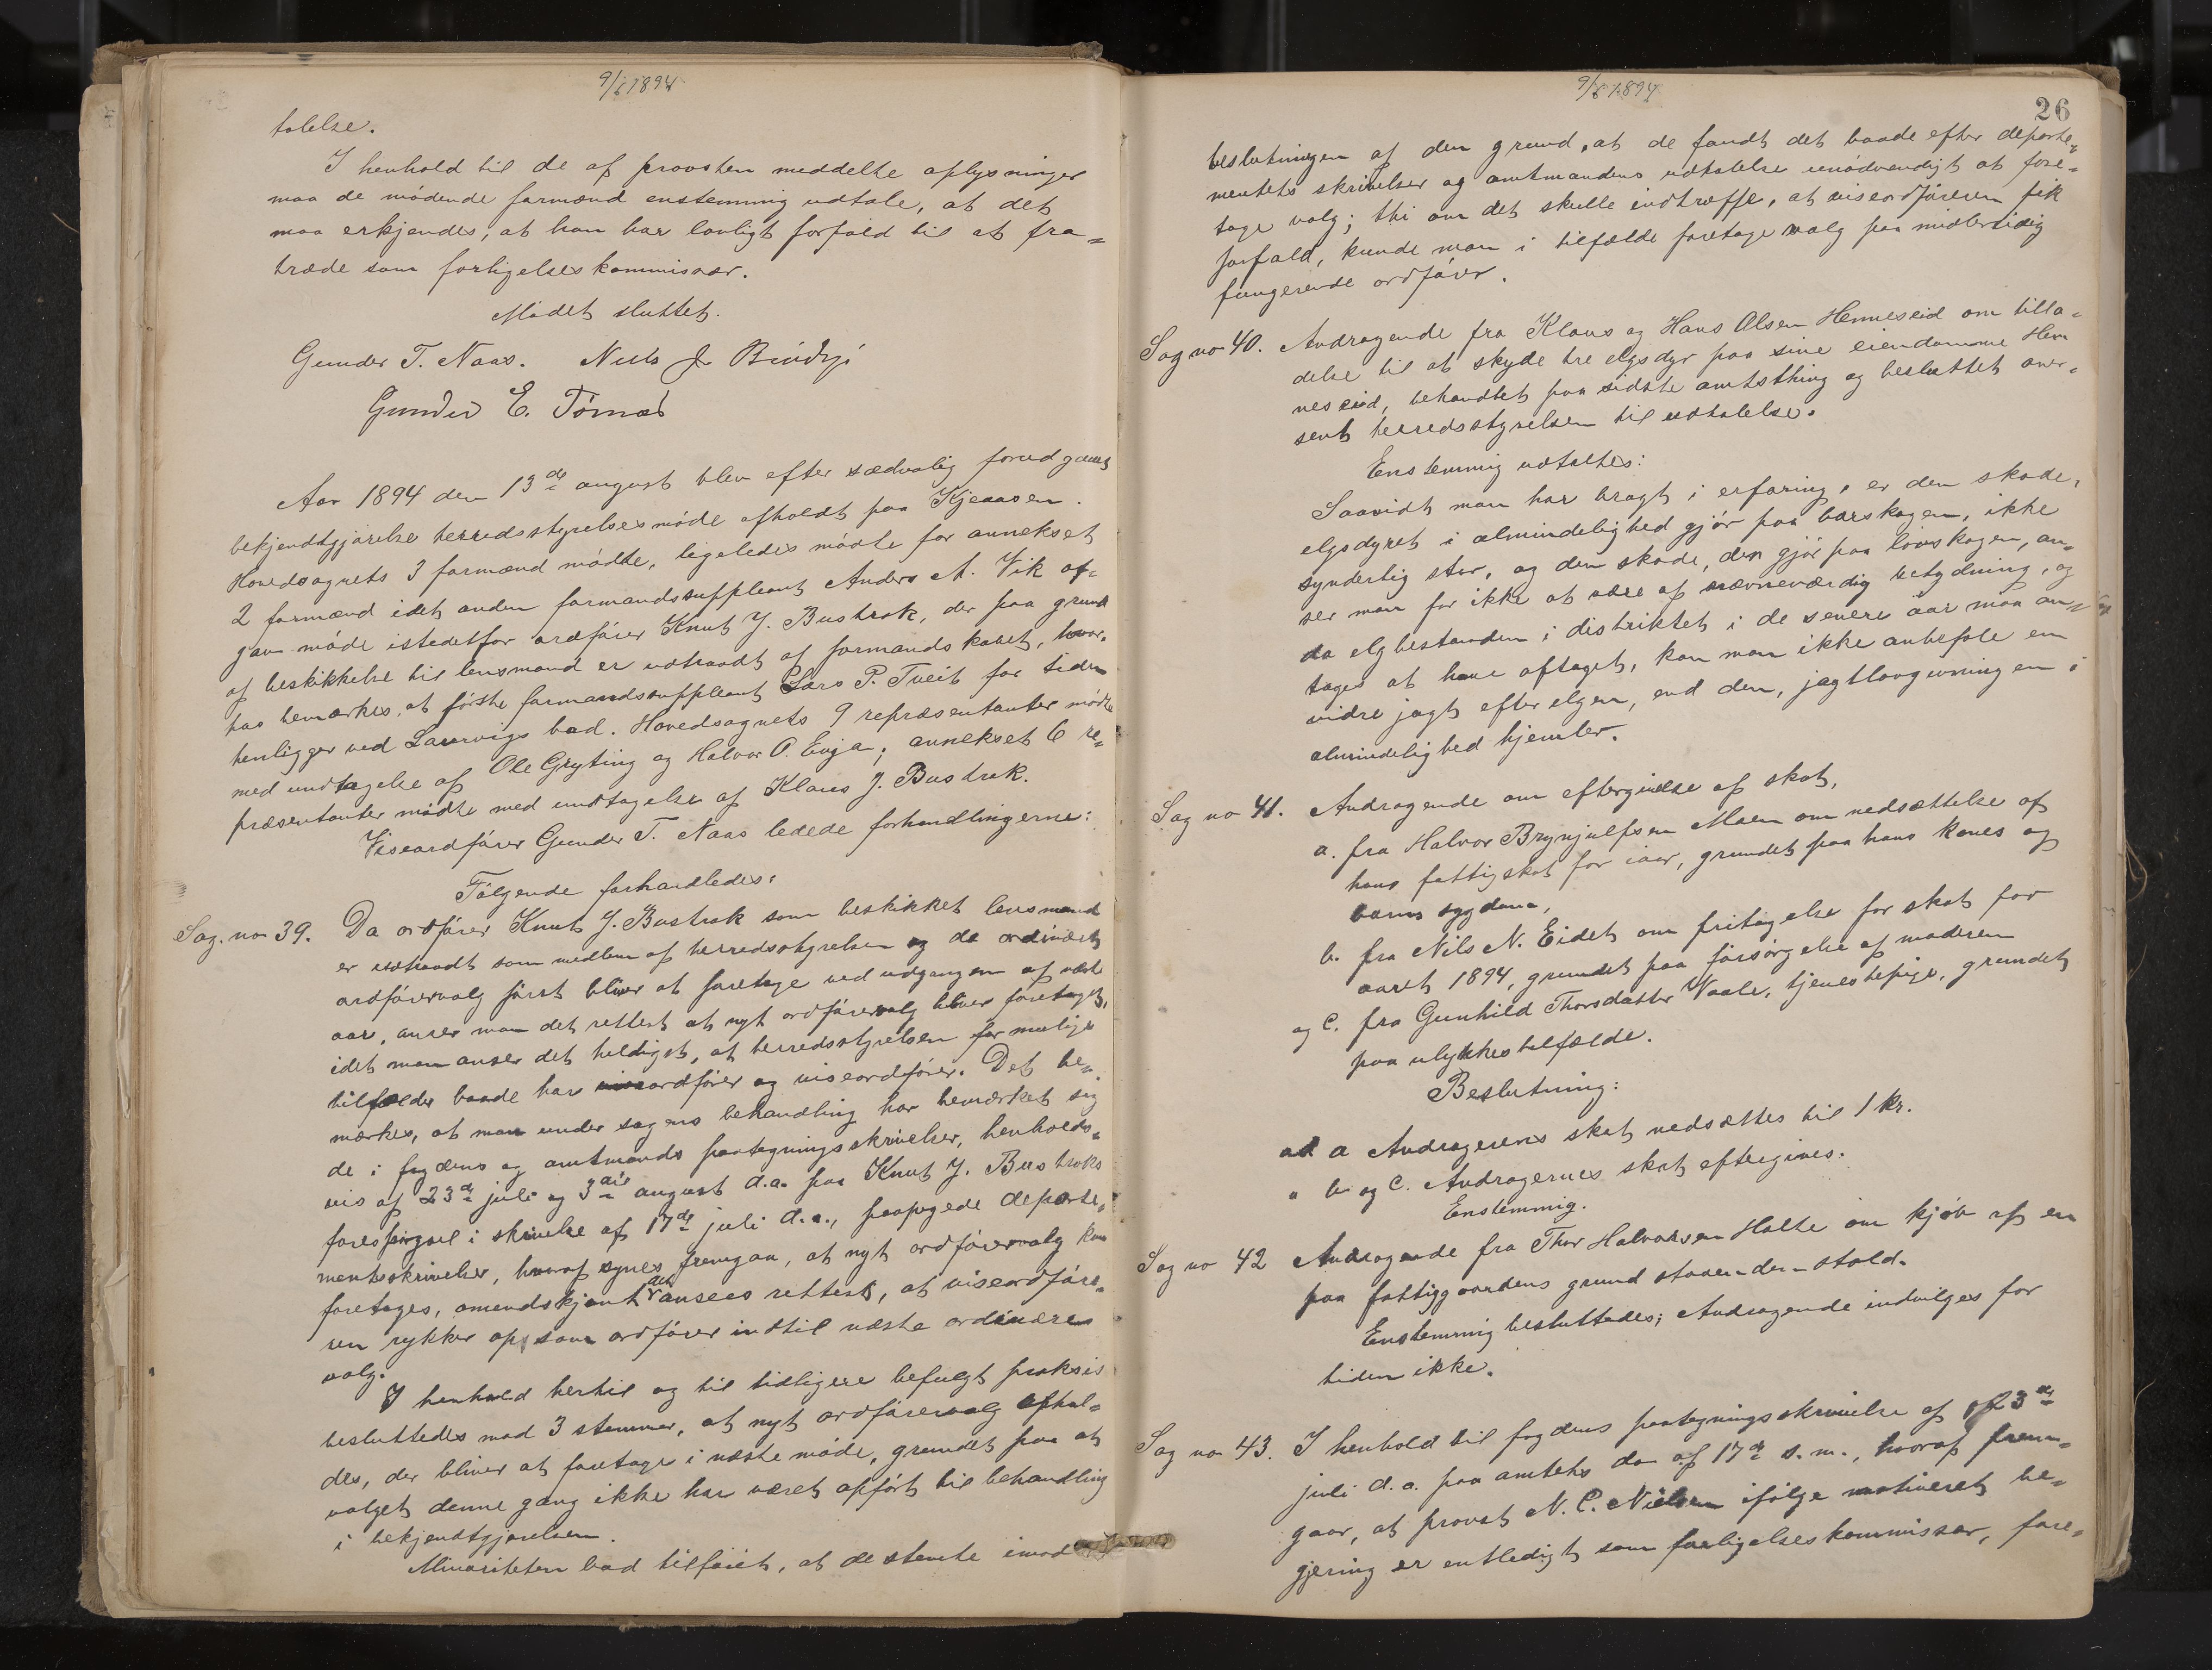 9/8 1894
talelse.
I henhold til de af provsten meddelte oplysninger
maa de mødende formænd enstemmig udtale, at det
maa erkjendes, at han har lovligt forfald til at fra-
træde som forligelseskommissær.
Mødet sluttet.
Gunder T. Naas. Niels J.
Gunder E. Tørnæs
Aar 1894 den 13de august blev efter sædvalig forudgaaet
bekjendtgjørelse herredsstyrelsesmøde afholdt paa Kjeaasen.
Hovedsognets 3 formænd mødte, ligeledes mødte for annekset
2 formænd idet anden formandssuppleant Anders A. Vik af-
gav møde istedetfor ordfører Knut J. Bustrak, der paa grund
af beskikkelse til lensmand er udtraadt af formandskabet, hvor-
hos bemærkes, at første formandssuppleant Lars P. Tveit for tiden
henligger ved Laurvigs bad. Hovedsognets 9 repræsentanter mødte
med undtagelse af Ole Gryting og Halvor O. Evja; annekset 6 re-
præsentanter mødte med undtagelse af Klaus J. Bustrak.
Viseordfører Gunder T. Naas ledede forhandlingerne:
Følgende forhandledes:
Sag. no 39. Da ordfører Knut J. Bustrak som beskikket lensmand
er udtraadt som medlem af herredsstyrelsen og da ordinært
ordførervalg først bliver at foretage ved udgangen af næste
aar, anser man det rettest at nyt ordførervalg bliver foretaget,
idet man anser det heldigst, at herredsstyrelsen for mulige
tilfælder baade har ordfører og viseordfører. Det be-
mærkes, at man under sagens behandling har bemærket sig
de i fogdens og amtmands paategningsskrivelser, henholds-
vis af 23de juli og 3die august d.a. paa Knut J. Bustraks
forespørgsel i skrivelse af 17de juli d.a., paapegede departe-
mentsskrivelser, hvoraf synes fremgaa, at nyt ordførervalg kan
foretages, omendskjønt det ansees rettest, at viseordføre-
ren rykker op som ordfører indtil næste ordinære
valg.
I henhold hertil og til tidligere befulgt praksis
besluttedes mod 3 stemmer, at nyt ordførervalg afhol-
des, der bliver at foretage i næste møde, grundet paa at
valget denne gang ikke har været opført til behandling
i bekjendtgjørelsen.
Minoriteten bad tilføiet, at de stemte imod
9/8 1894
26
beslutningen af den grund, at de fandt det baade efter departe-
mentets skrivelser og amtmandens udtalelse unødvendigt at fore-
tage valg; thi om det skulle indtræffe, at viseordføreren fik
forfald, kunde man i tilfælde foretage valg paa midlertidig
fungerende ordfører.
Sag no 40. Andragende fra Klaus og Hans Olsen Henneseid om tilla-
delse til at skyde tre elgsdyr paa sine eiendomme Hen
neseid, behandlet paa sidste amtsthing og besluttet over-
sent herredsstyrelsen til udtalelse.
Enstemmig udtaltes:
Saavidt man har bragt i erfaring, er den skade,
elgsdyret i almindelighed gjør paa barskogen, ikke
synderlig stor, og den skade, den gjør paa løvskogen, an-
ser man for ikke at være af nævneværdig betydning, og
da elgbestanden i distriktet i de senere aar maa an-
tages at have aftaget, kan man ikke anbefale en
vidre jagt efter elgen, end den, jagtlovgivningen i
almindelighed hjemler.
Sag no 41. Andragende om eftergivelse af skat,
a. fra Halvor Brynjulfsen Moen om nedsættelse af
hans fattigskat for iaar, grundet paa hans kones og
barns sygdom,
b. fra Nils N. Eidet om fritagelse for skat for
aaret 1894, grundet paa forsørgelse af moderen
og c. fra Gunhild Thorsdatter Naale, tjenestepige, grundet
paa ulykkestilfælde.
Beslutning:
ad a Andragerens skat nedsættes til 1 kr.
" b. og c. Andragernes skat eftergives.
Enstemmig.
Sag no 42 Andragende fra Thor Halvorsen Holte om kjøb af en
paa fattiggaardens grund staaende stald.
Enstemmig besluttedes; Andragende indvilges for
tiden ikke.
Sag no 43. I henhold til fogdens paategningsskrivelse af 23de
juli d.a. paa amtets do af 17de s.m., hvoraf frem-
gaar, at provst N. C. Nielsen ifølge motiveret be-
gjering er entledigt som forligelseskommissær, fore-